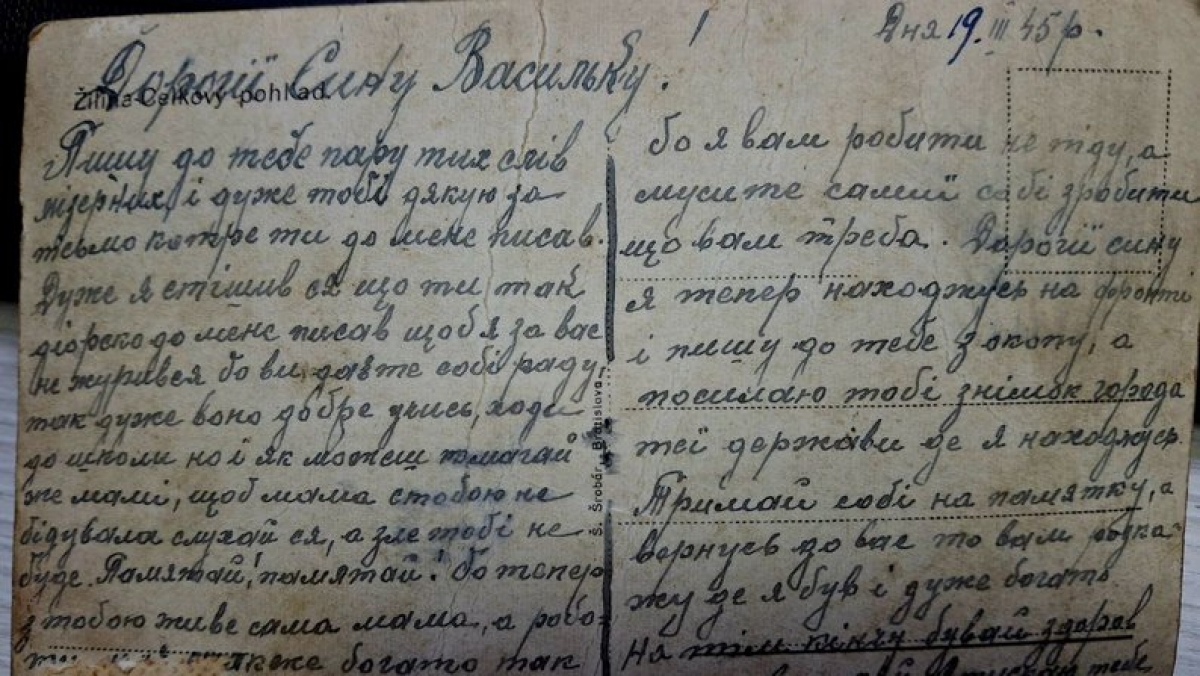 Дня 19. III 45р.
Дорогії Сину Васильку!
Žilina-Celkový pohľad
Пишу до тебе пару тих слів
мізерних, і дуже тобі дякую за
письмо котре ти до мене писав.
Дуже я стішив ся що ти так
до мене писав щоб я за вас
не журився бо ви дасте собі раду,
так дуже воно добре учись, ходи
до школи но і як можеш помагай
же мамі, щоб мама стобою не
бідувала слухай ся, а зле тобі не
буде. Памятай! памятай! бо тепер
з тобою живе сама мама, а робо-
ти якеже богато так
Š. Šrobár, Bratislava.
бо я вам робити не піду, а
мусите самії собі зробити
що вам треба. Дорогії сину
я тепер находжусь на фронті
і пишу до тебе з окопу, а
посилаю тобі знімок города
теї держави де я находжусь.
Тримай собі на памятку, а
вернусь до вас то вам розка-
жу де я був і дуже богато
на тім кінчу бувай здоров
тебе